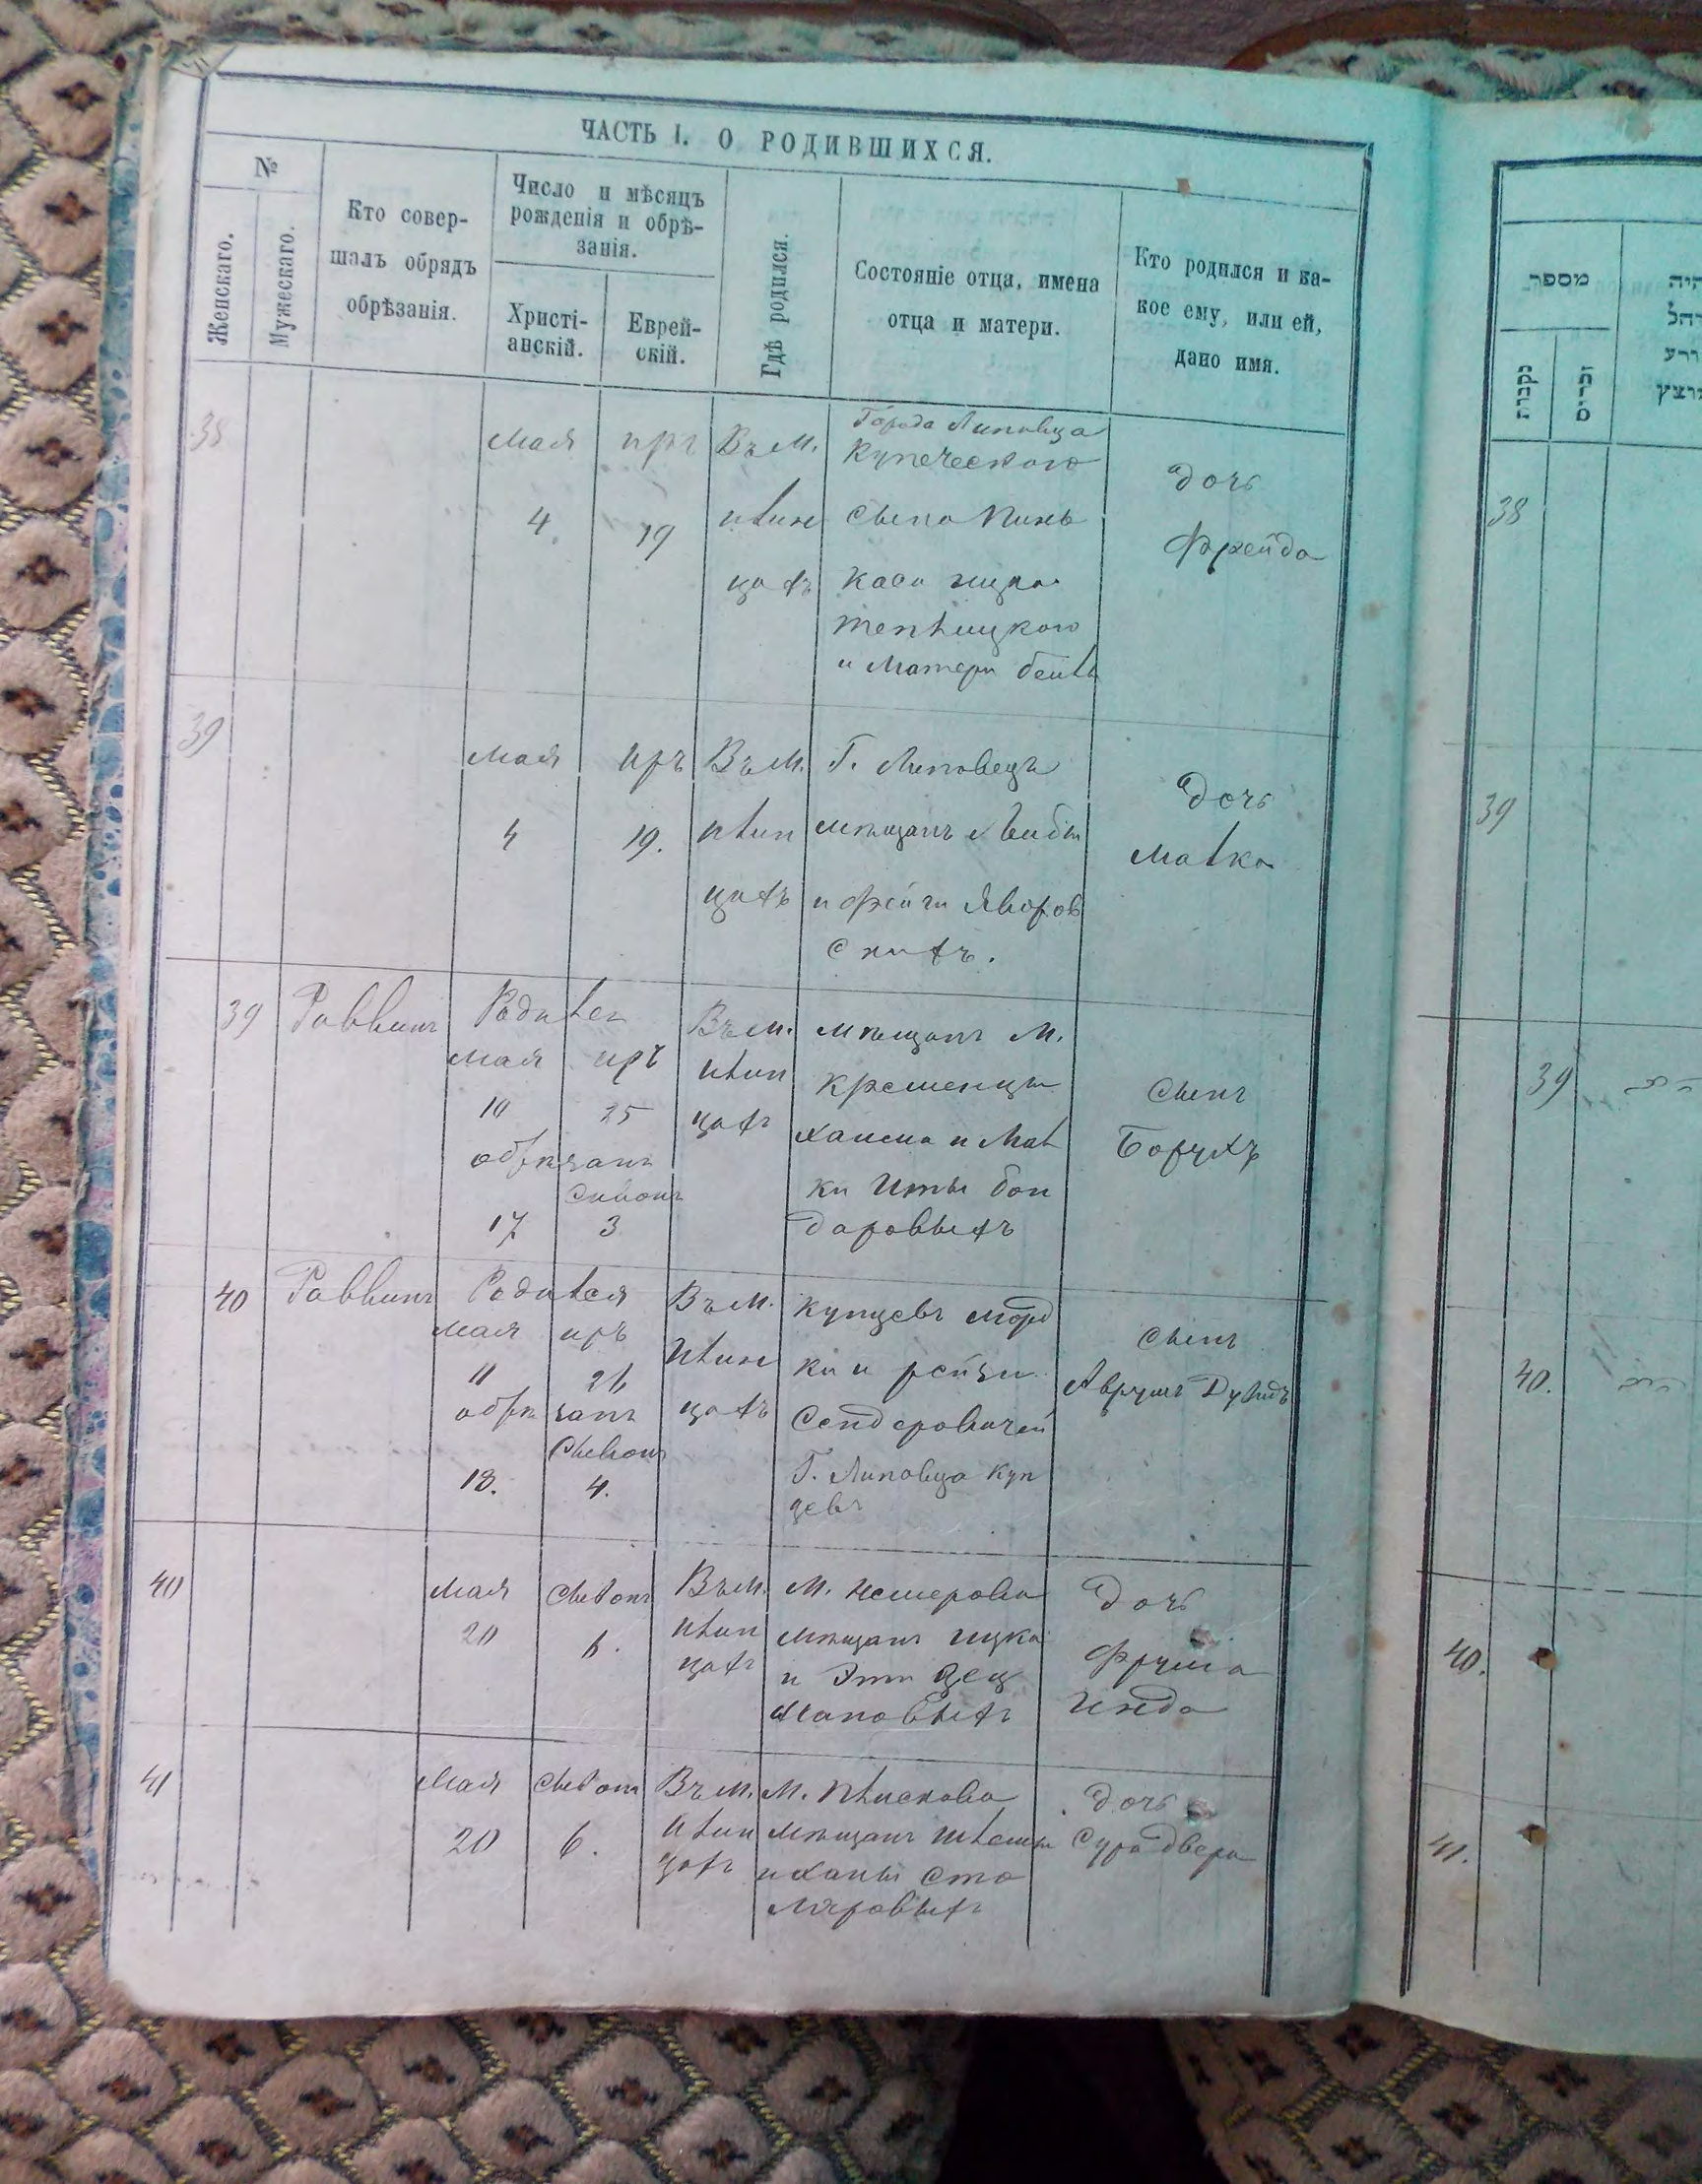 ЧАСТЬ I. О РОДИВШИХСЯ.
№
Женскаго.
Мужескаго.
Кто совер-
шалъ обрядъ
обрѣзанія.
Число и мѣсяцъ
рожденія и обрѣ-
занія.
Христі-
анскій.
Еврей-
скій.
Гдѣ родился.
Состояніе отца, имена
отца и матери.
Кто родился и ка-
кое ему, или ей,
дано имя.
38
Мая
4.
иръ
19
Въ М.
Илин
цахъ
Города Липовца
Купеческого
Сына Пинь
каса ицка
и Матери Бейлы
дочь
Фрейда
39
Мая
4
Иръ
19.
Въ М.
Илин
цахъ
Г. Липовецъ
мѣщанъ Лейбы
и Фейги Яворов
скихъ.
дочь
Малка
39
Раввинъ
Родился
Мая иръ
10 25
обрѣзанъ
Сивонъ
17 3
Въ М.
Илин
цахъ
мѣщанъ М.
Хаима и Мал
ки Иты Бон
даровыхъ
Сынъ
Борухъ
40
Раввинъ
Родился
Мая иръ
11 26
обрѣзанъ
Сывонъ
18. 4.
Въ М.
Илин
цахъ
купцевъ Морд
ки и рейзи
Сендеровичей
Г. Липовца Куп
цевъ
Сынъ
Аврумъ Дувидъ
40
Мая
20
Сывонъ
6.
Въ М.
Илин
цахъ
М. Немерова
мѣщанъ Ицка
и Эти
дочь
Фрума
Инда
41
Мая
20
Сывонъ
6.
Въ М.
Илин
цахъ
М. Плискова
мѣщанъ Шлемы
и Ханы Сто
ляровыхъ
дочь
Сура Двера
מספר
נקבות
זכרים
38
39
39
40.
40.
41.